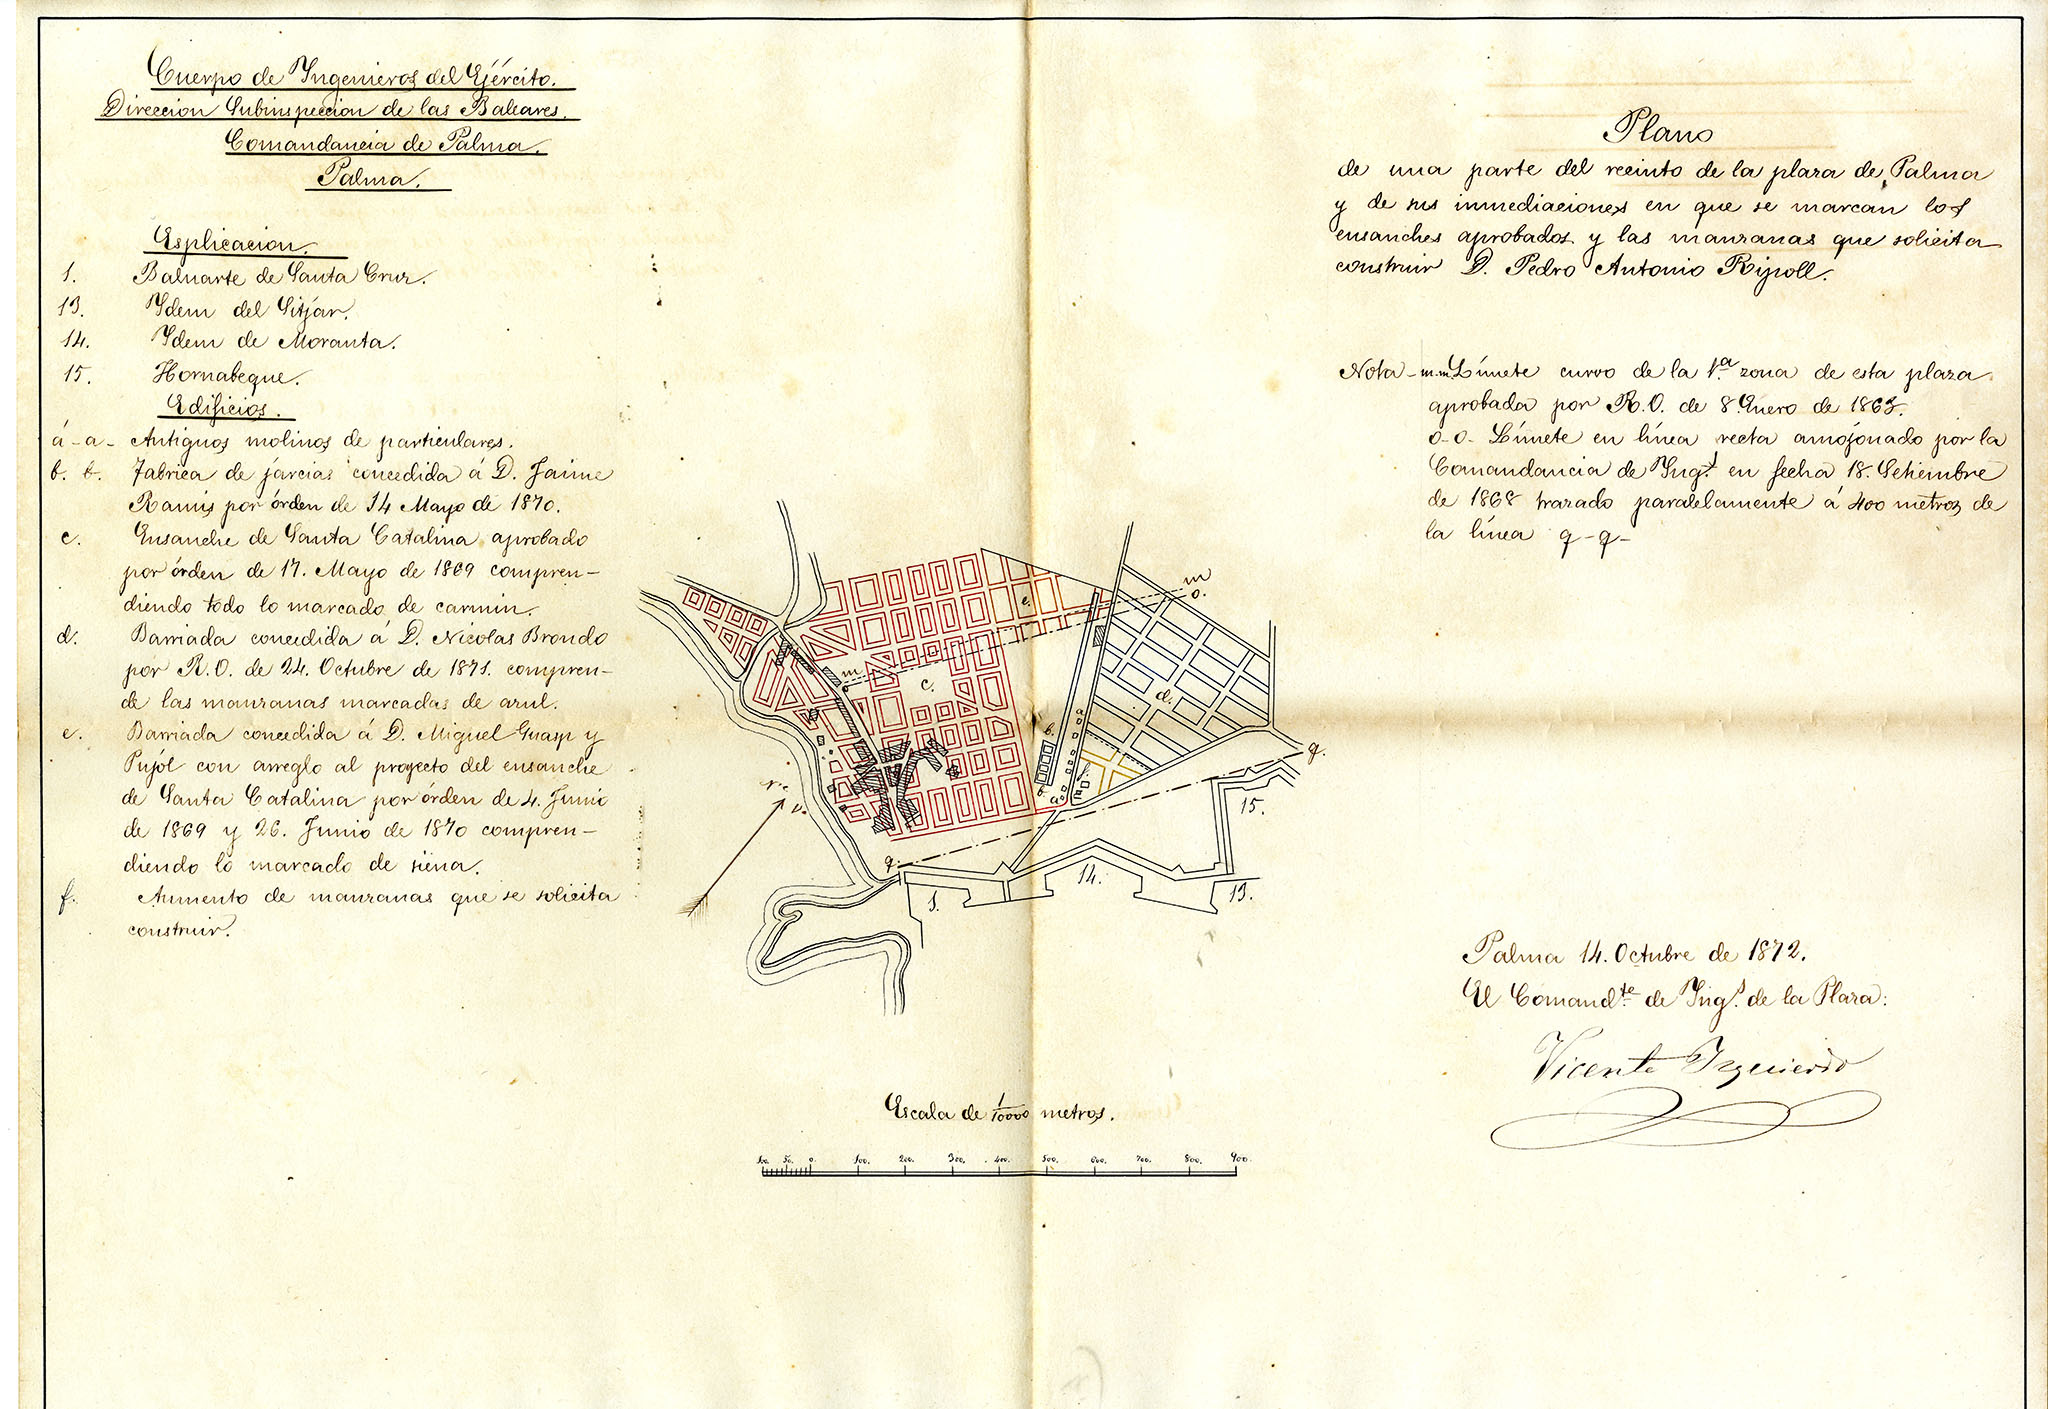 Cuerpo de Ingenieros del Ejército.
Direccion Subinspeccion de las Baleares.
Comandancia de Palma.
Palma.
Esplicacion.
1. Baluarte de Santa Cruz.
13. Ydem del Sitjar.
14. Ydem de Moranta.
15. Hornabeque.
Edificios.
á-a- Antiguos molinos de particulares.
b. b. Fabrica de jarcias concedida á D. Jaime
Ramis por órden de 14 Mayo de 1870.
c. Ensanche de Santa Catalina aprobado
por órden de 17. Mayo de 1869 compren-
diendo todo lo marcado de carmin.
d. Barriada concedida á D. Nicolas Brondo
por R.O. de 24. Octubre de 1871. compren-
de las manzanas marcadas de azul.
e. Barriada concedida á D. Miguel Guasp y
Pujól con arreglo al proyecto del ensanche
de Santa Catalina por órden de 4. Junio
de 1869 y 26. Junio de 1870 compren-
diendo lo marcado de siena.
f. Aumento de manzanas que se solicita
construir.
Plano
de una parte del recinto de la plaza de Palma
y de sus inmediaciones en que se marcan los
ensanches aprobados y las manzanas que solicita
construir D. Pedro Antonio Ripoll.
Nota - m.m. Límete curvo de la 1.ª zona de esta plaza
aprobada por R.O. de 8 Enero de
o-o- Límete en línea recta amojonado por la
Comandancia de Ing.s en fecha 18. Setiembre
de 1868 trazado paralelamente á 400 metros de
la línea q-q-
m
o.
e.
m
o
c.
d.
a
b.
q.
a
15.
q.
1.
14.
13.
Palma 14. Octubre de 1872.
El Comand.te de Ing.s de la Plaza:
Vicente Izquierdo
Escala de 1/10000 metros.
100. 50. 0. 100. 200. 300. 400. 500. 600. 700. 800. 900.